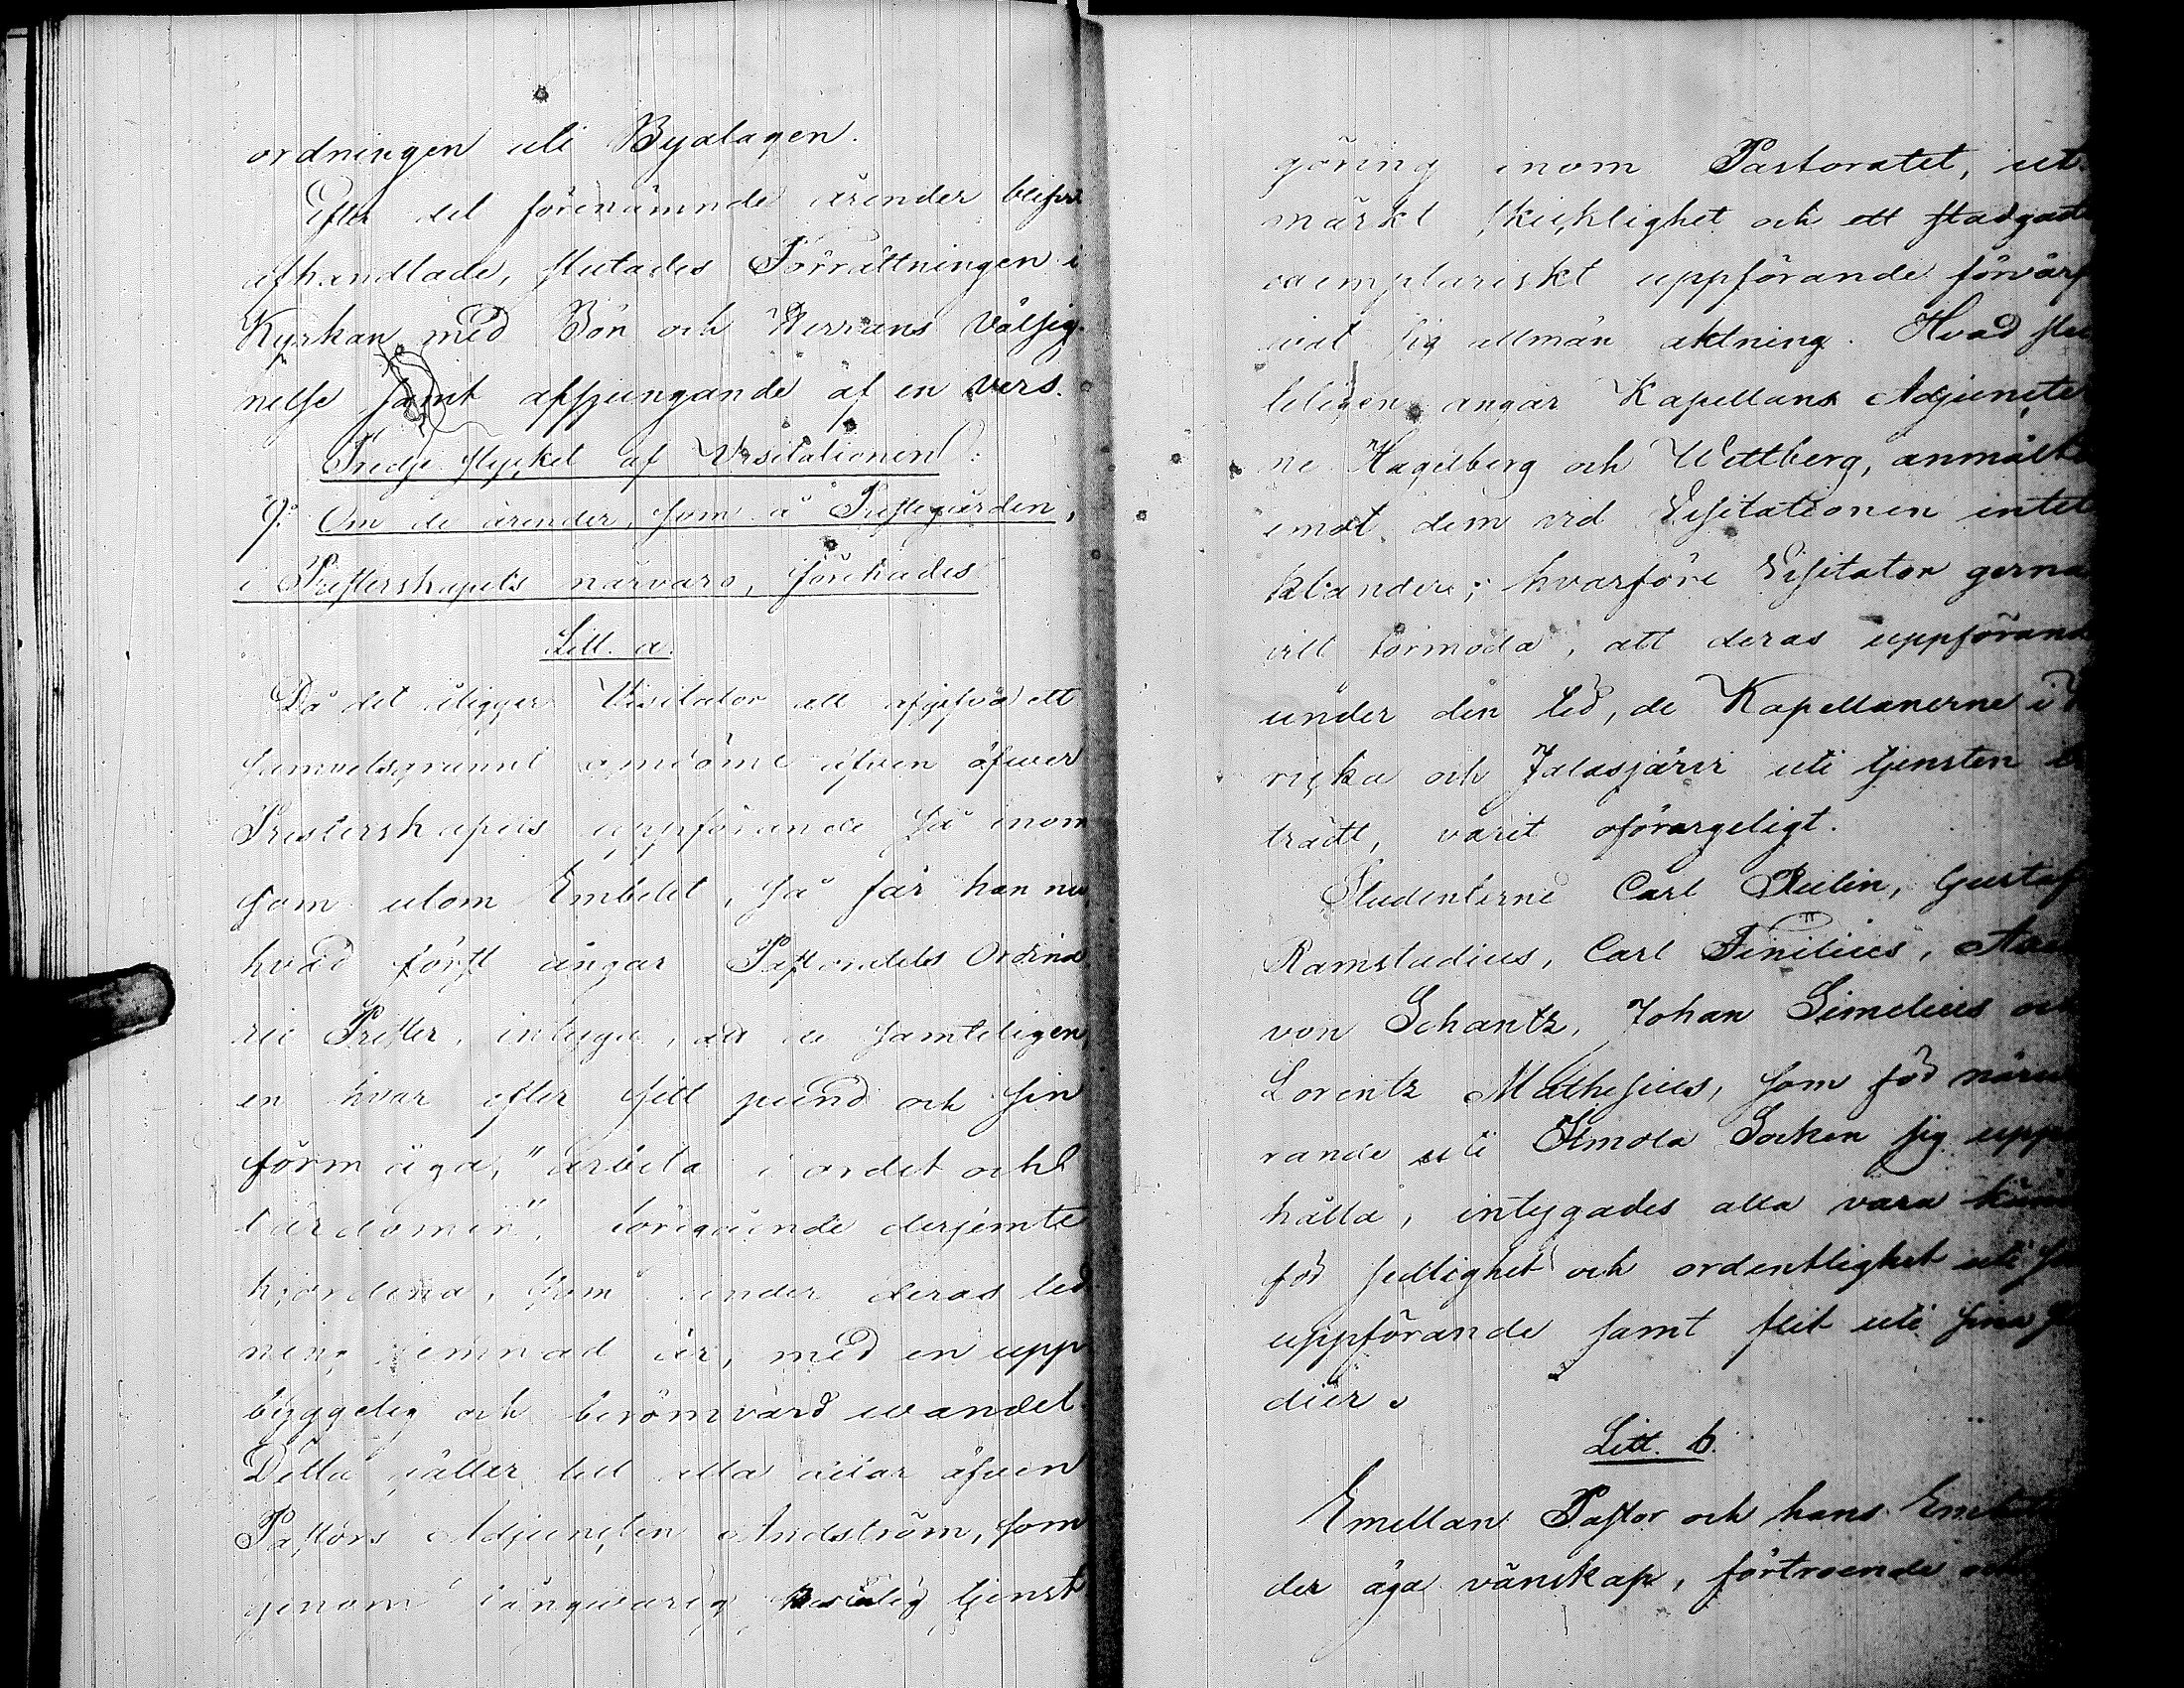 ordningen uti Byalagen.
Efter det förenämnde ärender blifvit
afhandlade, slutades Förrättningen i
Kyrkan med Bön och Herrans Välsig-
nelse samt afsjungande af en vers.
Tredje stycket af Visitationen:
Om de ärender, som å Prestegården,
i Presterskapets närvaro, förehades
Litt. a.
Då det åligger Visitator att afgifva ett
samvetsgrannt omdöme äfven öfwer
Presterskapets uppförande så inom
som utom Embetet, så får han nu
hvad först angår Pastoratets Ordina-
rie Prester, intyga, att de samteligen
en hvar efter sitt pund och sin
förmåga, "arbeta i ordet och
lärdomen", föregående derjemte
hjordena, som under deras led
ning lemnad är, med en upp
byggelig och berömvärd wandel.
Detta gäller till alla delar äfven
Pastors Adjuncten Andström, som
genom långwarig tjenst
göring inom Pastoratet, ut-
märkt skicklighet och ett stadgadt,
exemplariskt uppförande förvärf
vat sig allmän aktning. Hvad slu
teligen angår Kapellans Adjuncter
ne Hagelberg och Wettberg, anmältes
emot dem vid Visitationen intet
klander; hvarföre Visitator gerna
vill förmoda, att deras uppförande
under den tid, de Kapellanerne i
ricka och Jalasjärvi uti tjensten
trädt, varit oförargeligt.
Studenterne Carl Rulin, Gustaf
Ramstadius, Carl Finilius,
von Schantz, Johan Simelius och
Lorentz Mathesius, som för närva
rande uti Ilmola Socken sig uppe
hålla, intygades alla vara kände
för sedlighet och ordentlighet uti
uppförande samt flit uti sina
dier.
Litt. b.
Emellan Pastor och hans
der äga vänskap, förtroende och